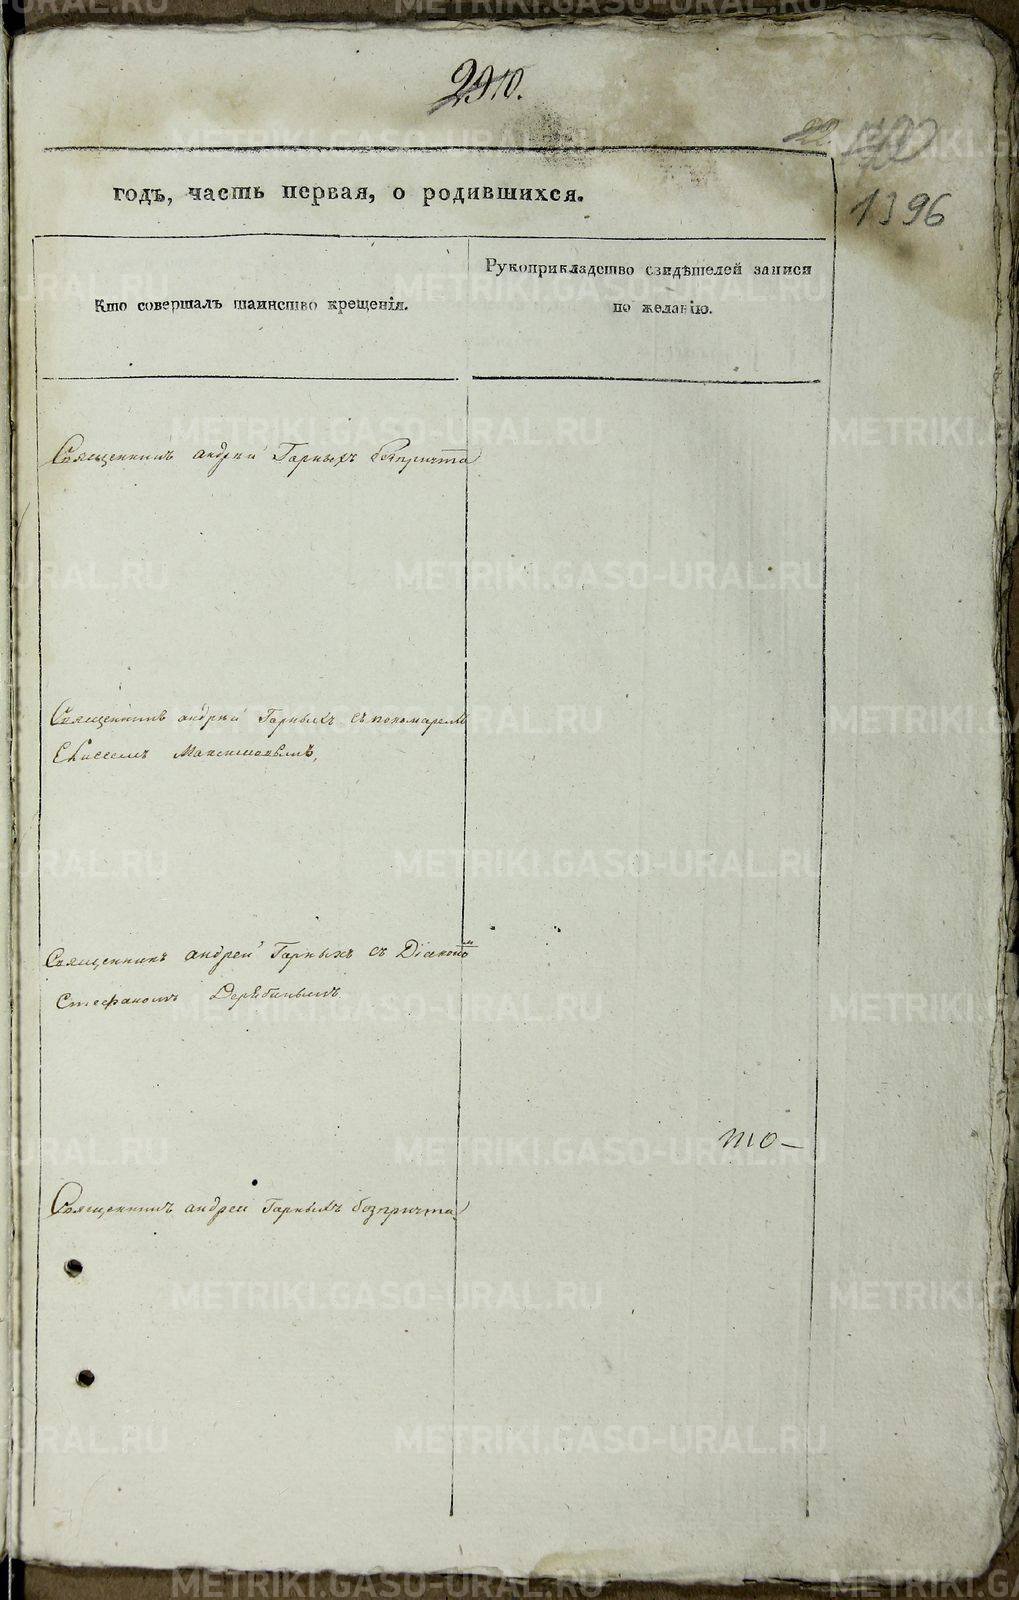 290.
22
1396
годъ, часть первая, о родившихся.
Кто совершалъ таинство крещенія.
Рукоприкладство свидѣтелей записи
по желанію.
Священникъ андрей Гарныхъ безпричта
Священникъ андрей Гарныхъ съ пономаремъ
Елисеемъ Максимовымъ,
Священникъ андрей Гарныхъ съ Діакономъ
Стефаномъ Дерябинымъ
то—
Священникъ андрей Гарныхъ безпричта
METRIKI.GASO-URAL.RU